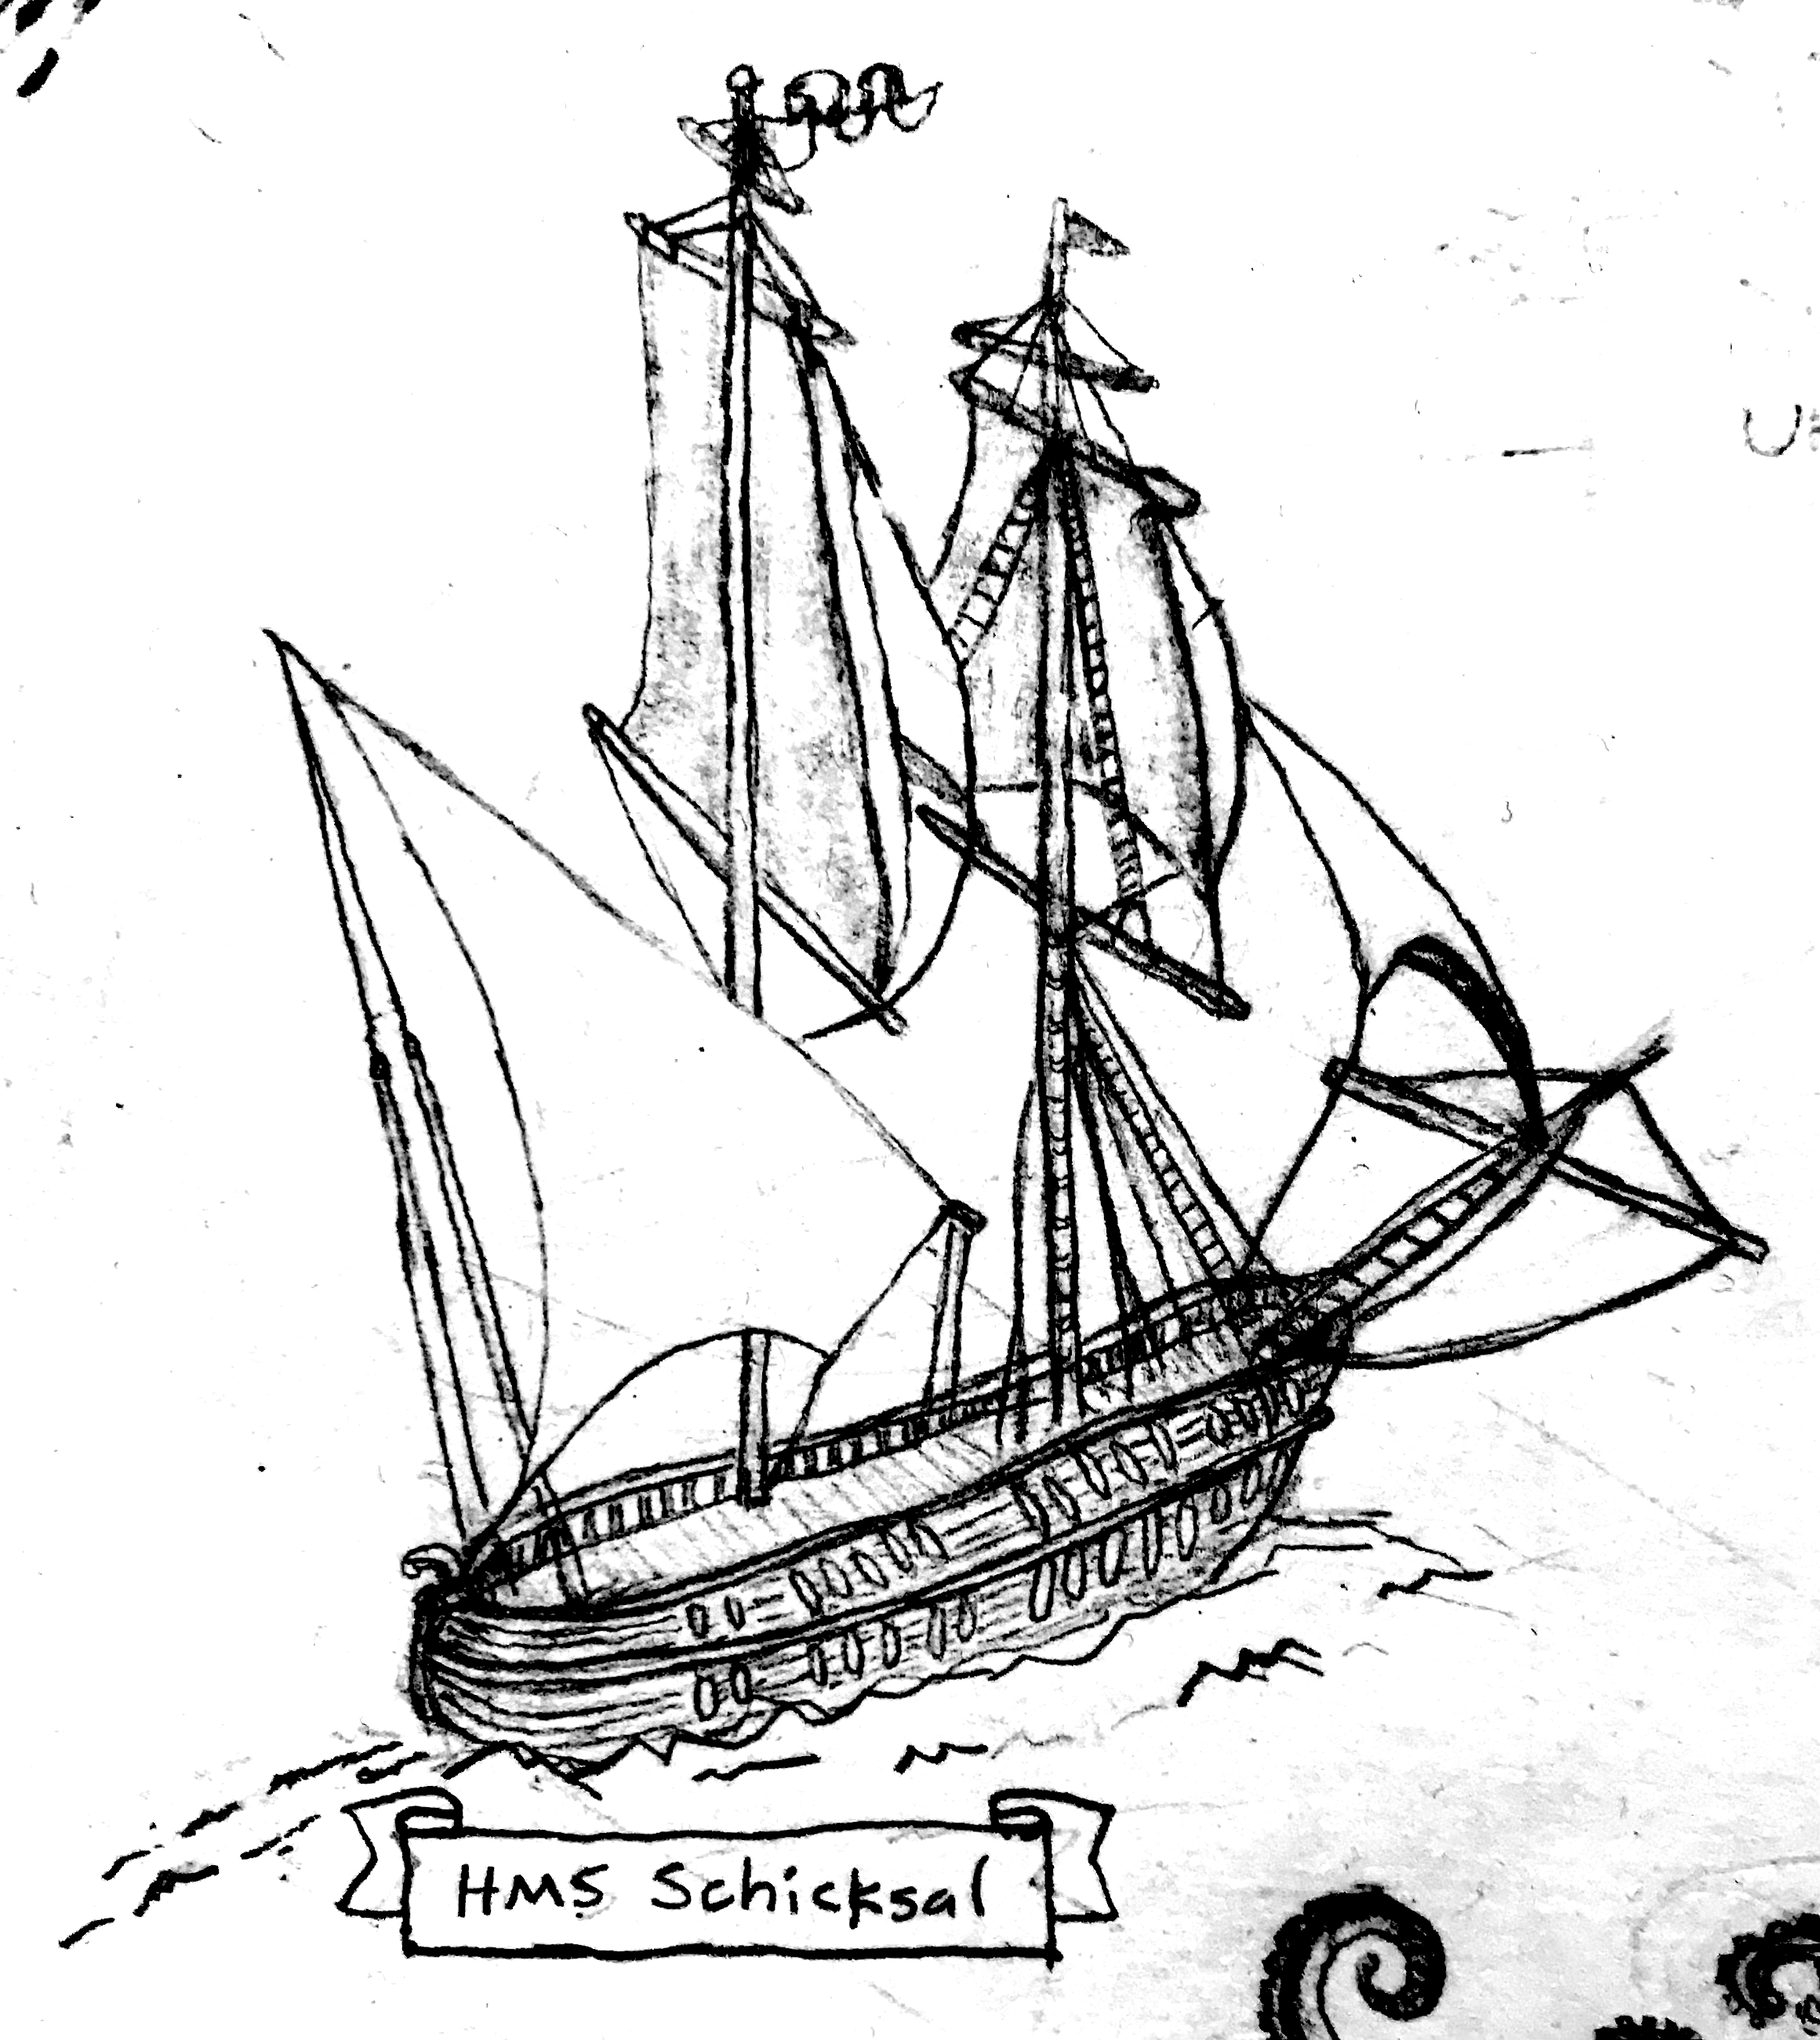 HMS Schicksal